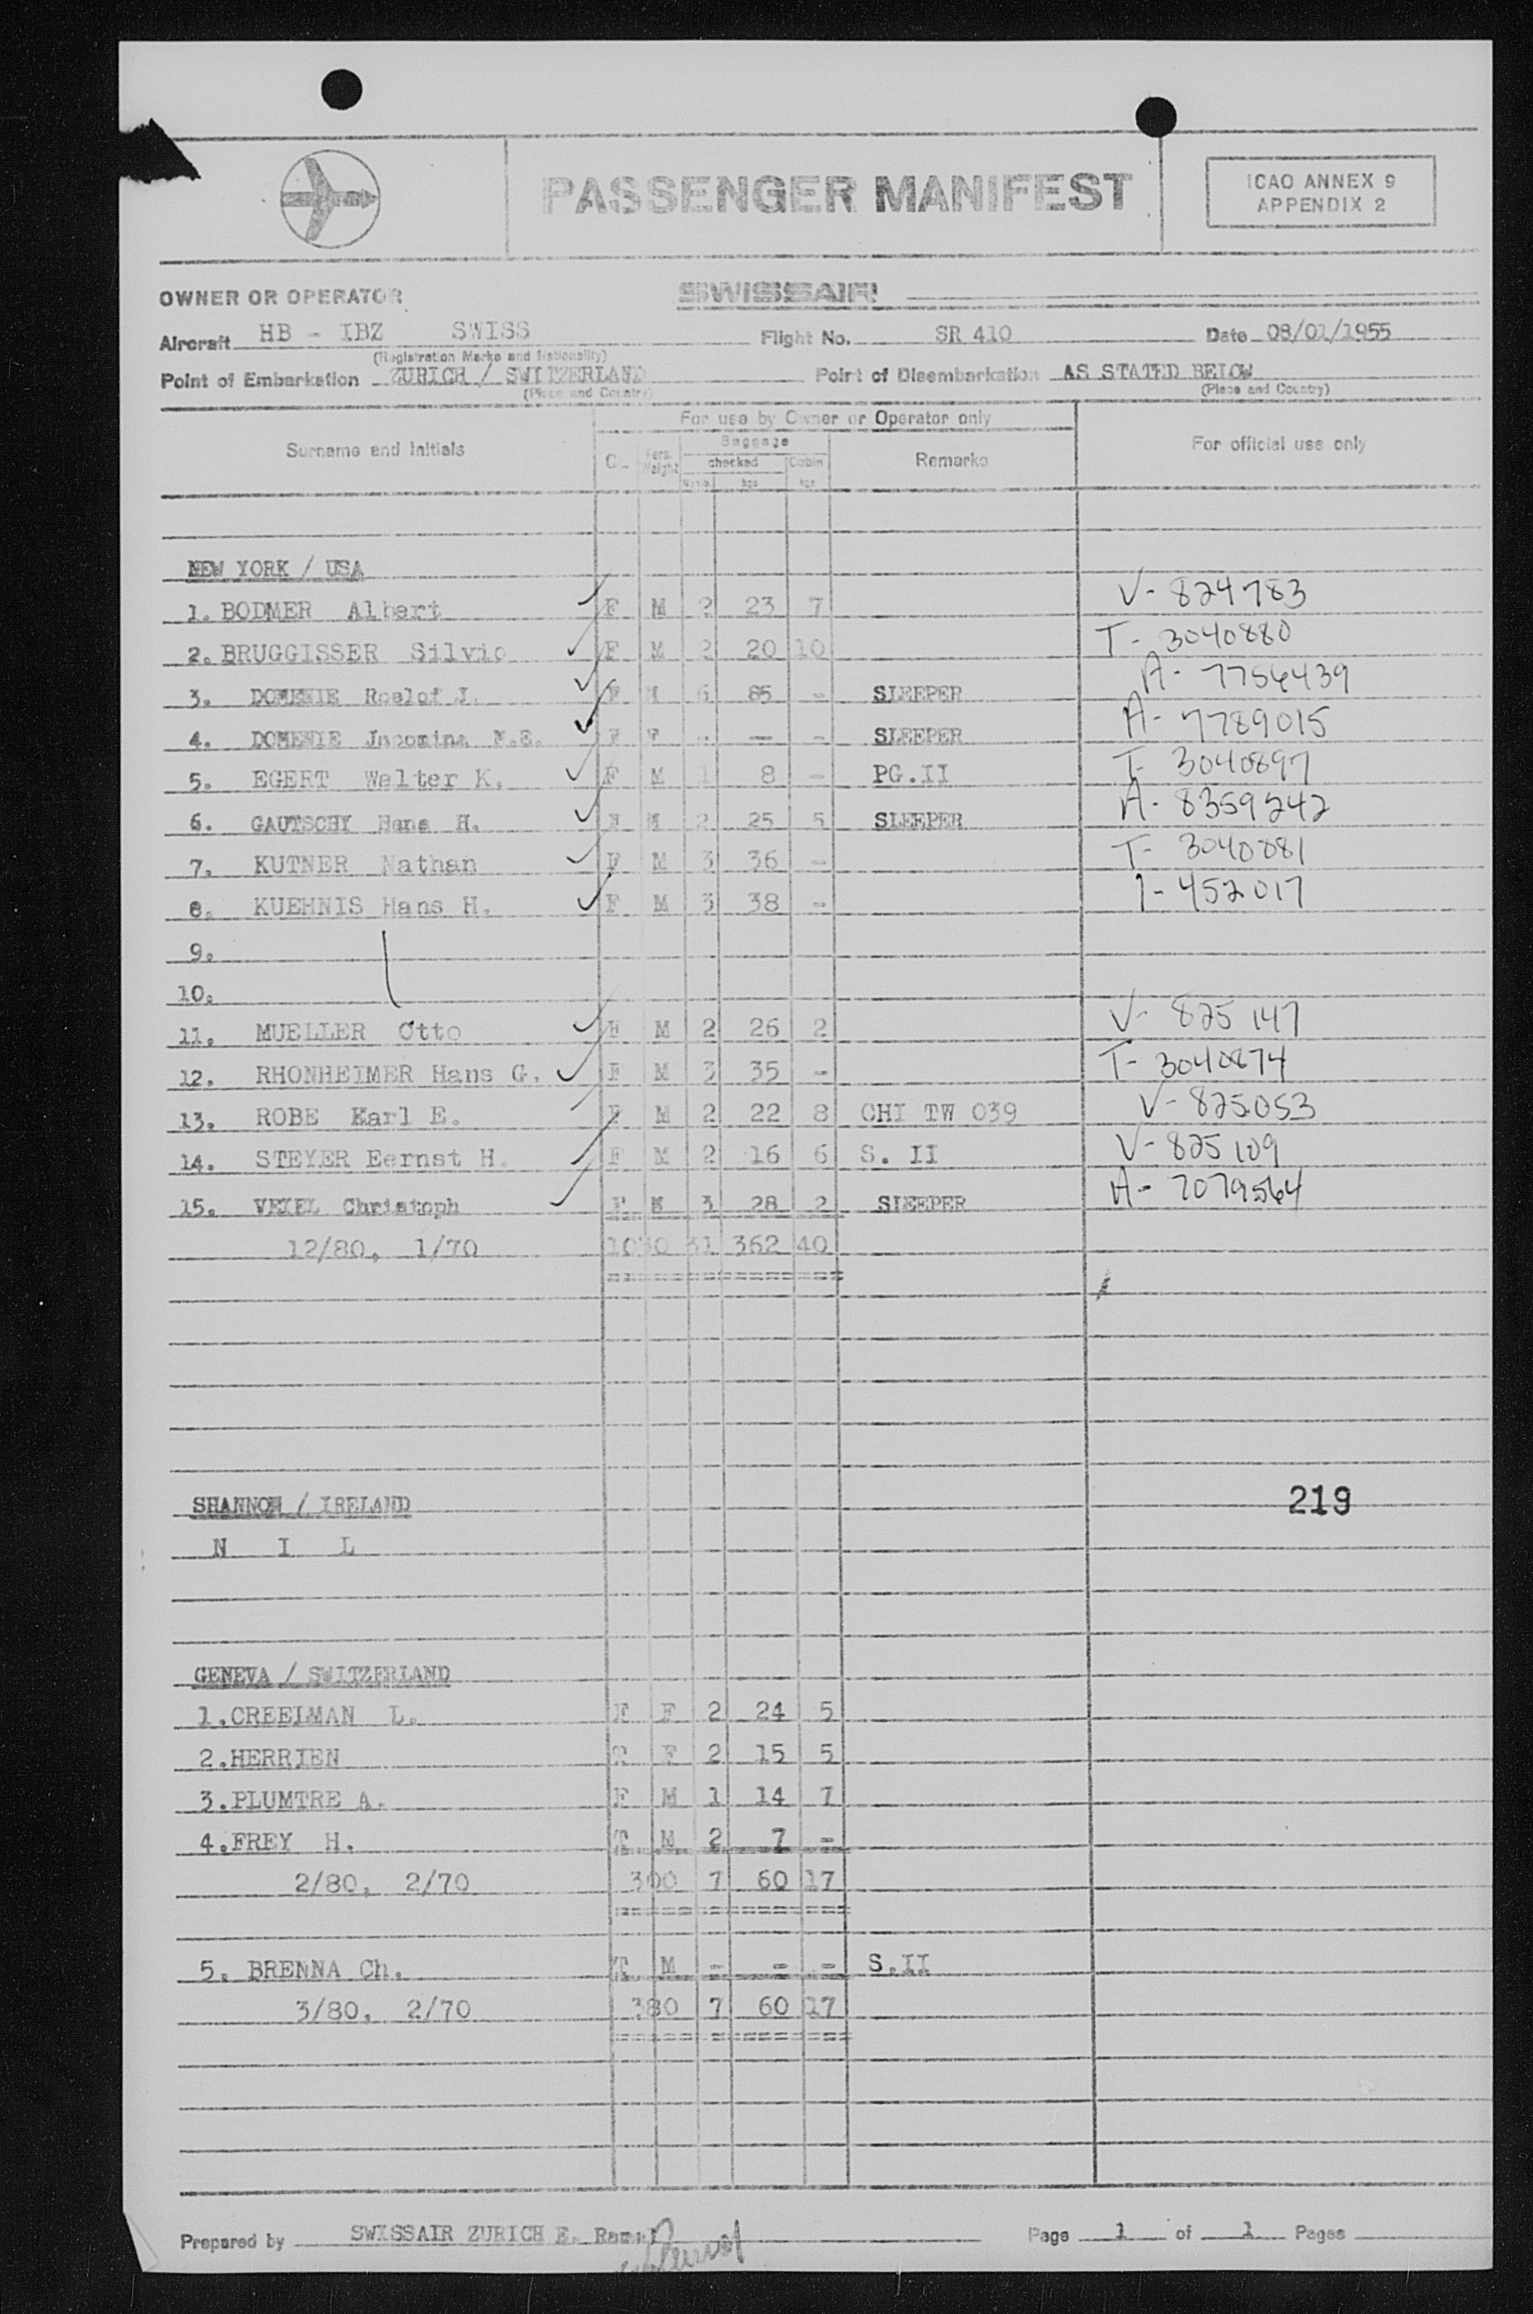 PASSENGER MANIFEST
ICAO ANNEX 9
APPENDIX 2
OWNER OR OPERATOR SWISSAIR
Aircraft HB - IBZ SWISS Flight No. SR 410 Date 08/01/1955
(Registration Marks and Nationality)
Point of Embarkation ZURICH / SWITZERLAND Point of Disembarkation AS STATED BELOW
(Place and Country) (Place and Country)
For use by Owner or Operator only
Surname and Initials Baggage For official use only
Cl. Pers. Weight checked Cabin Remarks
kgs kgs
NEW YORK / USA
1. BODMER Albert F M 2 23 7 V- 824783
2. BRUGGISSER Silvio F M 2 20 10 T- 3040880
3. DOMENIE Roelof J. F M 6 85 - SLEEPER A- 7756439
4. DOMENIE Jacomina F F - - - SLEEPER A- 7789015
5. EGERT Walter K. F M 1 8 - PG.II T- 3040897
6. GAUTSCHY Hans H. F M 2 25 5 SLEEPER A- 8359242
7. KUTNER Nathan F M 3 36 - T- 3040881
8. KUEHNIS Hans H. F M 3 38 - 1-452017
9.
10.
11. MUELLER Otto F M 2 26 2 V- 825147
12. RHONHEIMER Hans G. F M 3 35 - T- 3040874
13. ROBE Karl E. F M 2 22 8 CHI TW 039 V- 825053
14. STEYER Eernst H. F M 2 16 6 S. II V- 825109
15. VEXEL Christoph F M 3 28 2 SLEEPER A- 7079564
12/80, 1/70 1030 31 362 40
SHANNON / IRELAND 219
N I L
GENEVA / SWITZERLAND
1. CREELMAN L. F F 2 24 5
2. HERRIEN T F 2 15 5
3. PLUMTRE A. F M 1 14 7
4. FREY H. T M 2 7 -
2/80, 2/70 300 7 60 17
5. BRENNA Ch. T M - - - S.II
3/80, 2/70 380 7 60 17
Prepared by SWISSAIR ZURICH E. Page 1 of 1 Pages